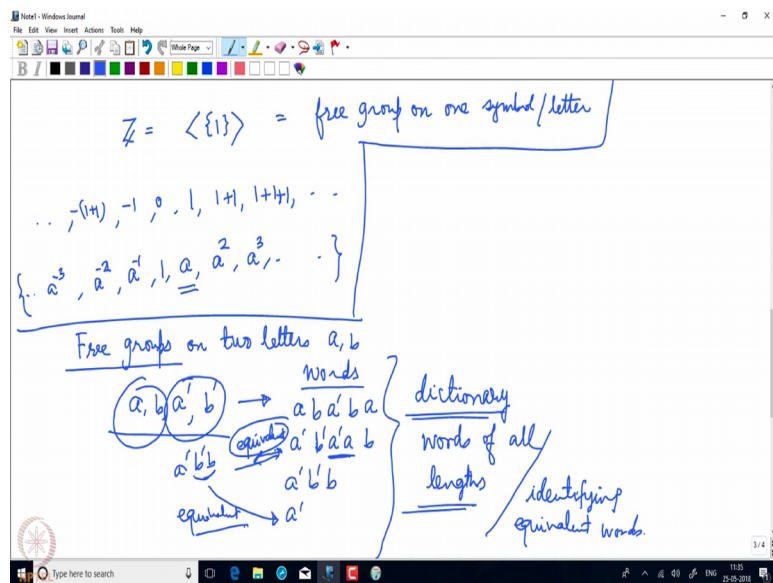 Note1 - Windows Journal
File Edit View Insert Actions Tools Help
Whole Page
B I
ℤ = ⟨{1}⟩ = free group on one symbol/letter
.. , -(1+1), -1, 0, 1, 1+1, 1+1+1, ...
{.. a⁻³, a⁻², a⁻¹, 1, a, a², a³, . . }
Free groups on two letters a, b
words
a, b a', b' → a b a' b a
equivalent a' b' a' a b
a' b' b
a' b' b
equivalent → a'
dictionary
words of all
lengths
identifying
equivalent words.
3/4
NPTEL
Type here to search
ENG
11:35
25-05-2018